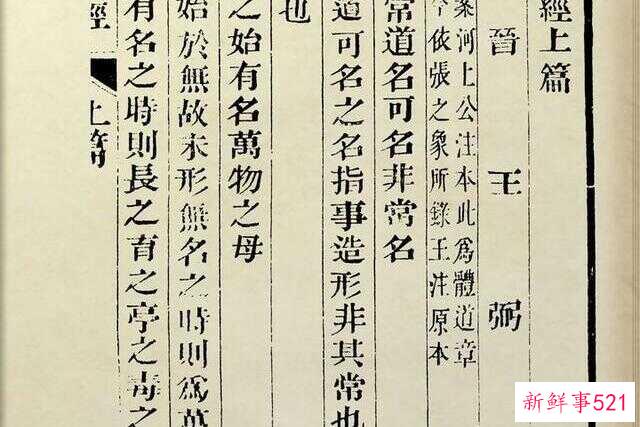 經上篇
晉 王 弼
案河上公注本此爲體道章
今依張之象所錄王注原本
常道名可名非常名
道可名之名指事造形非其常也
也
之始有名萬物之母
始於無故未形無名之時則爲萬
有名之時則長之育之亭之毒之
經 上篇
新鮮事521